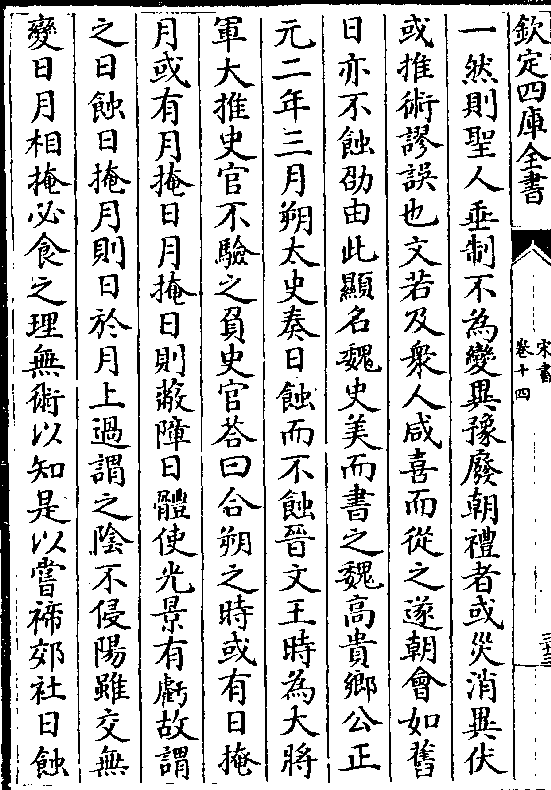 欽定四庫全書
宋書
卷十四
一然則聖人垂制不為變異豫廢朝禮者或災消異伏
或推術謬誤也文若及衆人咸喜而從之遂朝會如舊
日亦不蝕劭由此顯名魏史美而書之魏高貴鄉公正
元二年三月朔太史奏日蝕而不蝕晉文王時為大將
軍大推史官不驗之負史官荅曰合朔之時或有日掩
月或有月掩日月掩日則蔽障日體使光景有虧故謂
之日蝕日掩月則日於月上過謂之陰不侵陽雖交無
變日月相掩必食之理無術以知是以嘗禘郊社日蝕